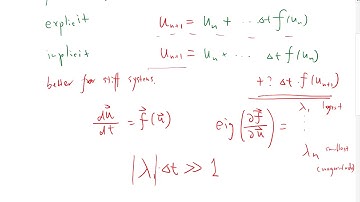 explicit u_{n+1} = u_n + ... Δt f(u_n)
implicit u_{n+1} = u_n + ... Δt f(u_n)
better for stiff systems. + ? Δt f(u_{n+1})
du⃗/dt = f⃗(u⃗) eig(∂f⃗/∂u⃗) = λ_1 largest
⋮
λ_n smallest
(magnitude)
|λ| Δt ≫ 1